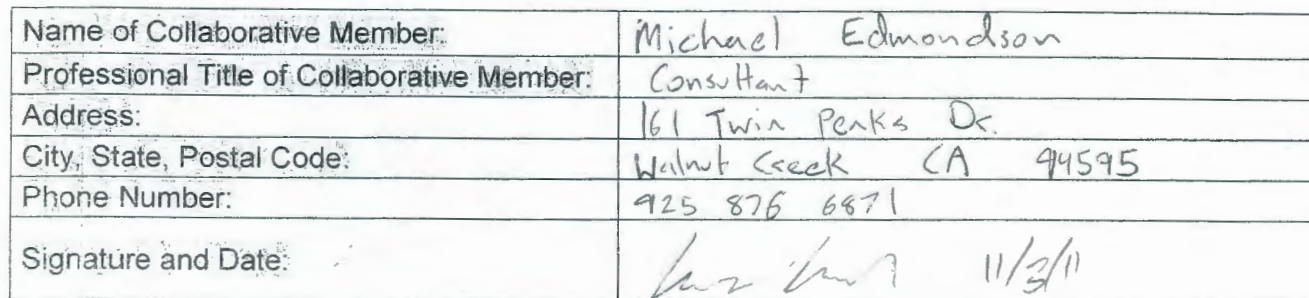 Name of Collaborative Member: Michael Edmondson
Professional Title of Collaborative Member: Consultant
Address: 161 Twin Peaks Dr.
City, State, Postal Code: Walnut Creek CA 94595
Phone Number: 925 876 6871
Signature and Date: